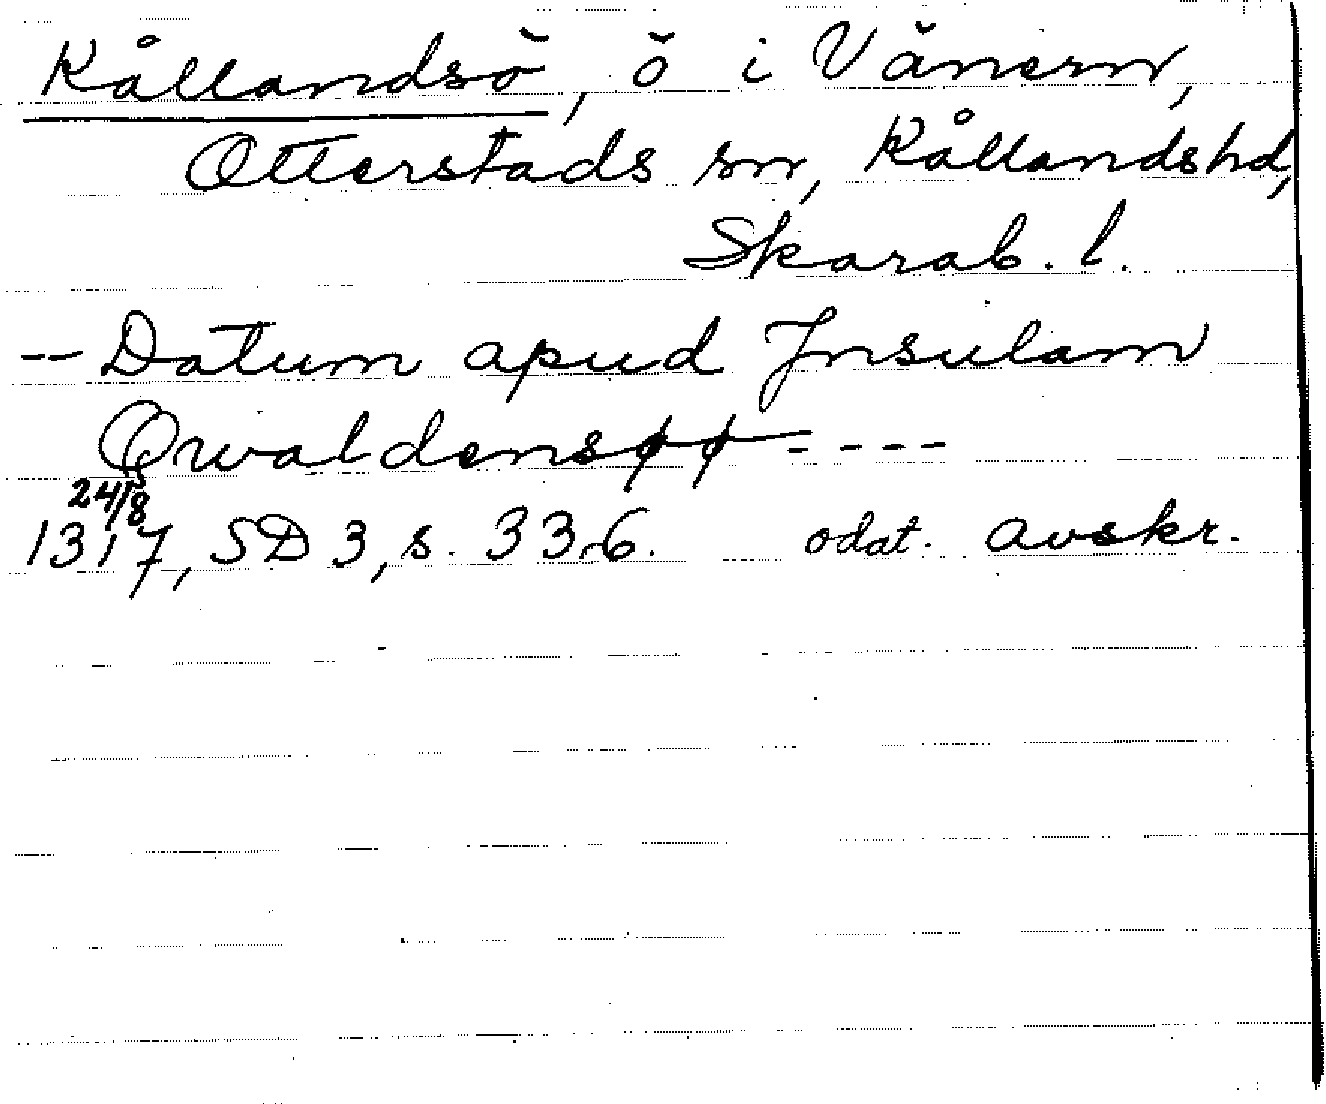 Kållandsö, ö i Vänern,
Otterstads sn, Kållands hd,
Skarab. l.
-- Datum apud Jnsulam
Qwaldensøø ----
24/8
1317, SD 3, s. 336. odat. avskr.